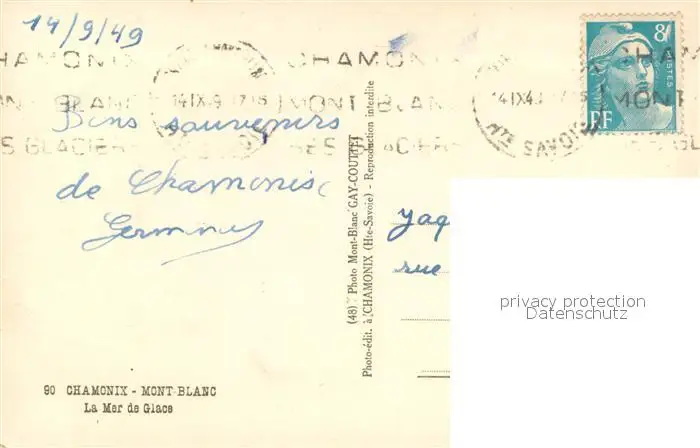 14/9/49
CHAMONIX CHAMONIX CHAM
14 IX 49 17 15 MONT BLANC 14 IX 49 MONT
8F
POSTES
RF
HTE SAVOIE
Bons souvenirs
de Chamonix
Yaq
rue
(48) Photo Mont-Blanc GAY-COUTTET
Photo-édit. à CHAMONIX (Hte-Savoie) - Reproduction interdite
privacy protection
Datenschutz
90 CHAMONIX - MONT-BLANC
La Mer de Glace